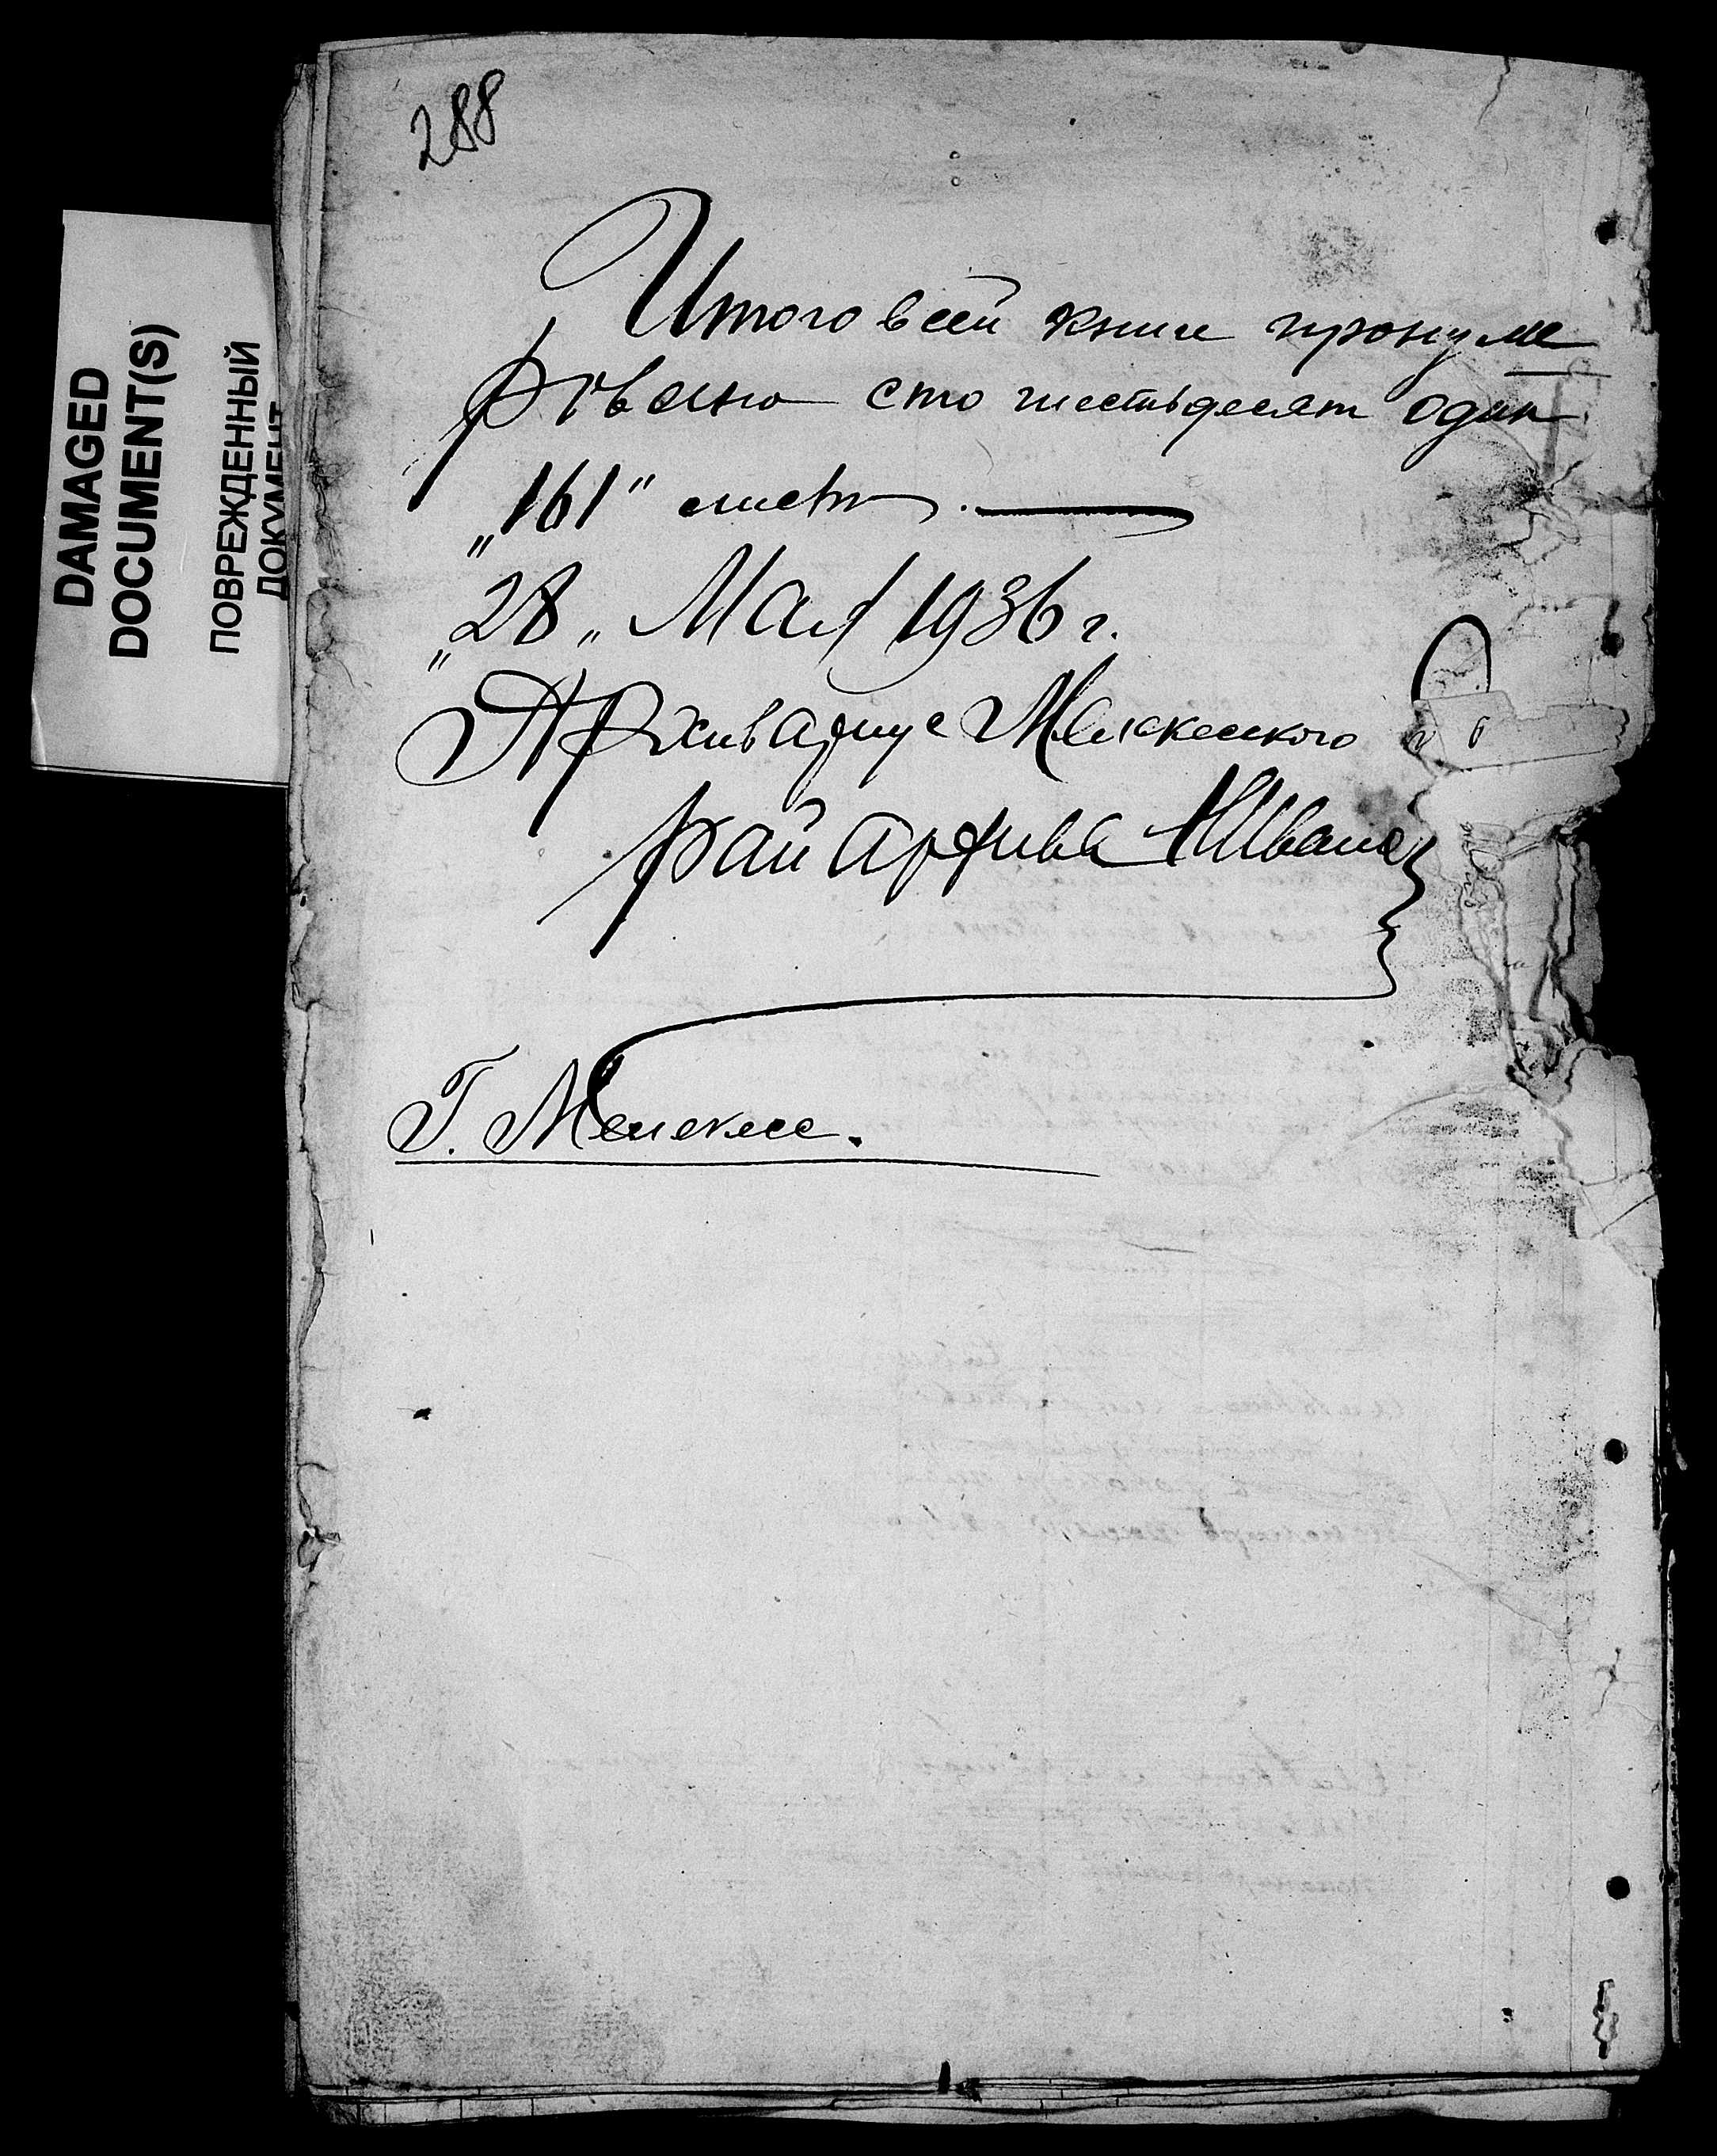 288
DAMAGED
DOCUMENT(S)
ПОВРЕЖДЕННЫЙ
ДОКУМЕНТ
Итого всей книги пронуме
ровано сто шестьдесят один
„161" лист.
„28„ Мая 1936 г.
Архивариус Мелекесского
рай архива
Г. Мелекесс.